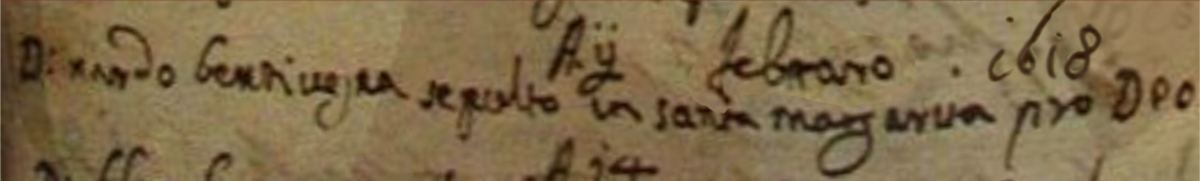 A ij febraro . i618
D: nardo benniuegna sepulto in santa margarita pro DEO
A i4